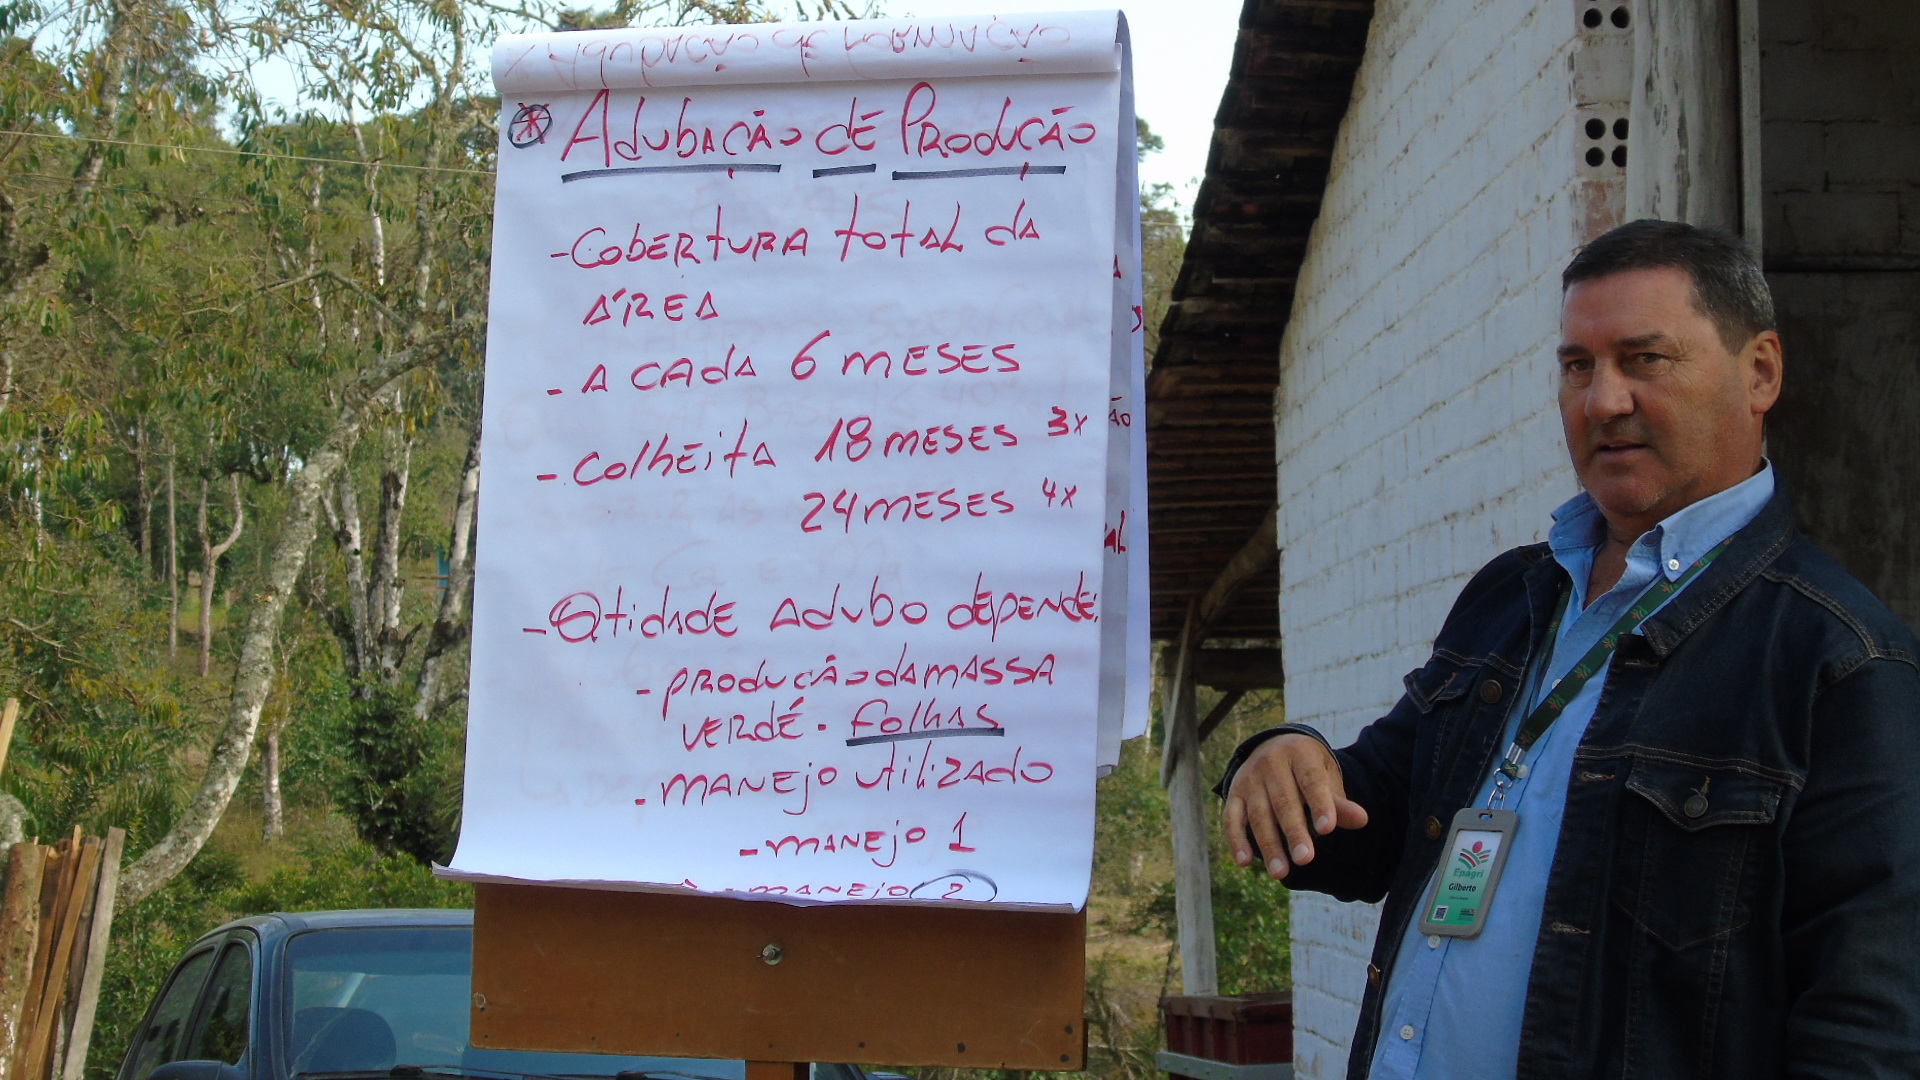 Adubação de Produção
- Cobertura total da
área
- A cada 6 meses
- Colheita 18 meses 3x
24 meses 4x
- Qtidade adubo depende:
- produção da massa
verde. folhas
- manejo utilizado
- manejo 1
- manejo 2
Epagri
Gilberto